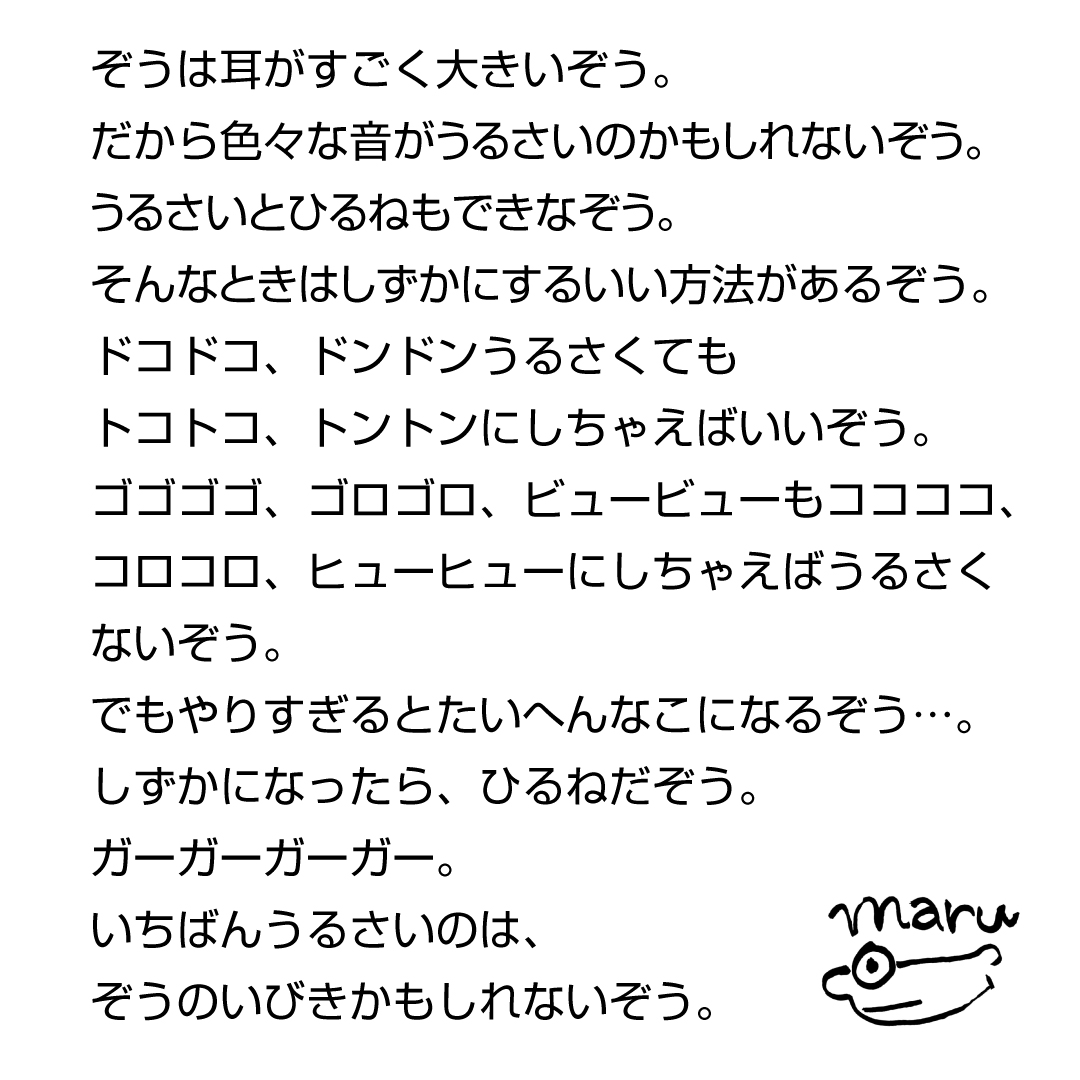 ぞうは耳がすごく大きいぞう。
だから色々な音がうるさいのかもしれないぞう。
うるさいとひるねもできなぞう。
そんなときはしずかにするいい方法があるぞう。
ドコドコ、ドンドンうるさくても
トコトコ、トントンにしちゃえばいいぞう。
ゴゴゴゴ、ゴロゴロ、ビュービューもココココ、
コロコロ、ヒューヒューにしちゃえばうるさく
ないぞう。
でもやりすぎるとたいへんなこになるぞう…。
しずかになったら、ひるねだぞう。
ガーガーガーガー。
いちばんうるさいのは、
ぞうのいびきかもしれないぞう。
maru